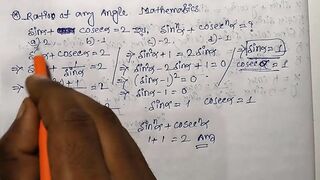 Ratio at any Angle Mathematics
sinα + cosecα = 2 হয়, sinⁿα + cosecⁿα = ?
a) 2 b) -1 c) -2 d) -1
+ cosecα = 2
+ 1/sinα = 2
+ 1 = 2
⇒ sin²α + 1 = 2 sinα
⇒ sin²α - 2 sinα + 1 = 0
⇒ (sinα - 1)² = 0
⇒ sinα - 1 = 0
sinα = 1
⇒ sinα = 1
cosecα = 1
sinⁿα + cosecⁿα
1 + 1 = 2 Ans